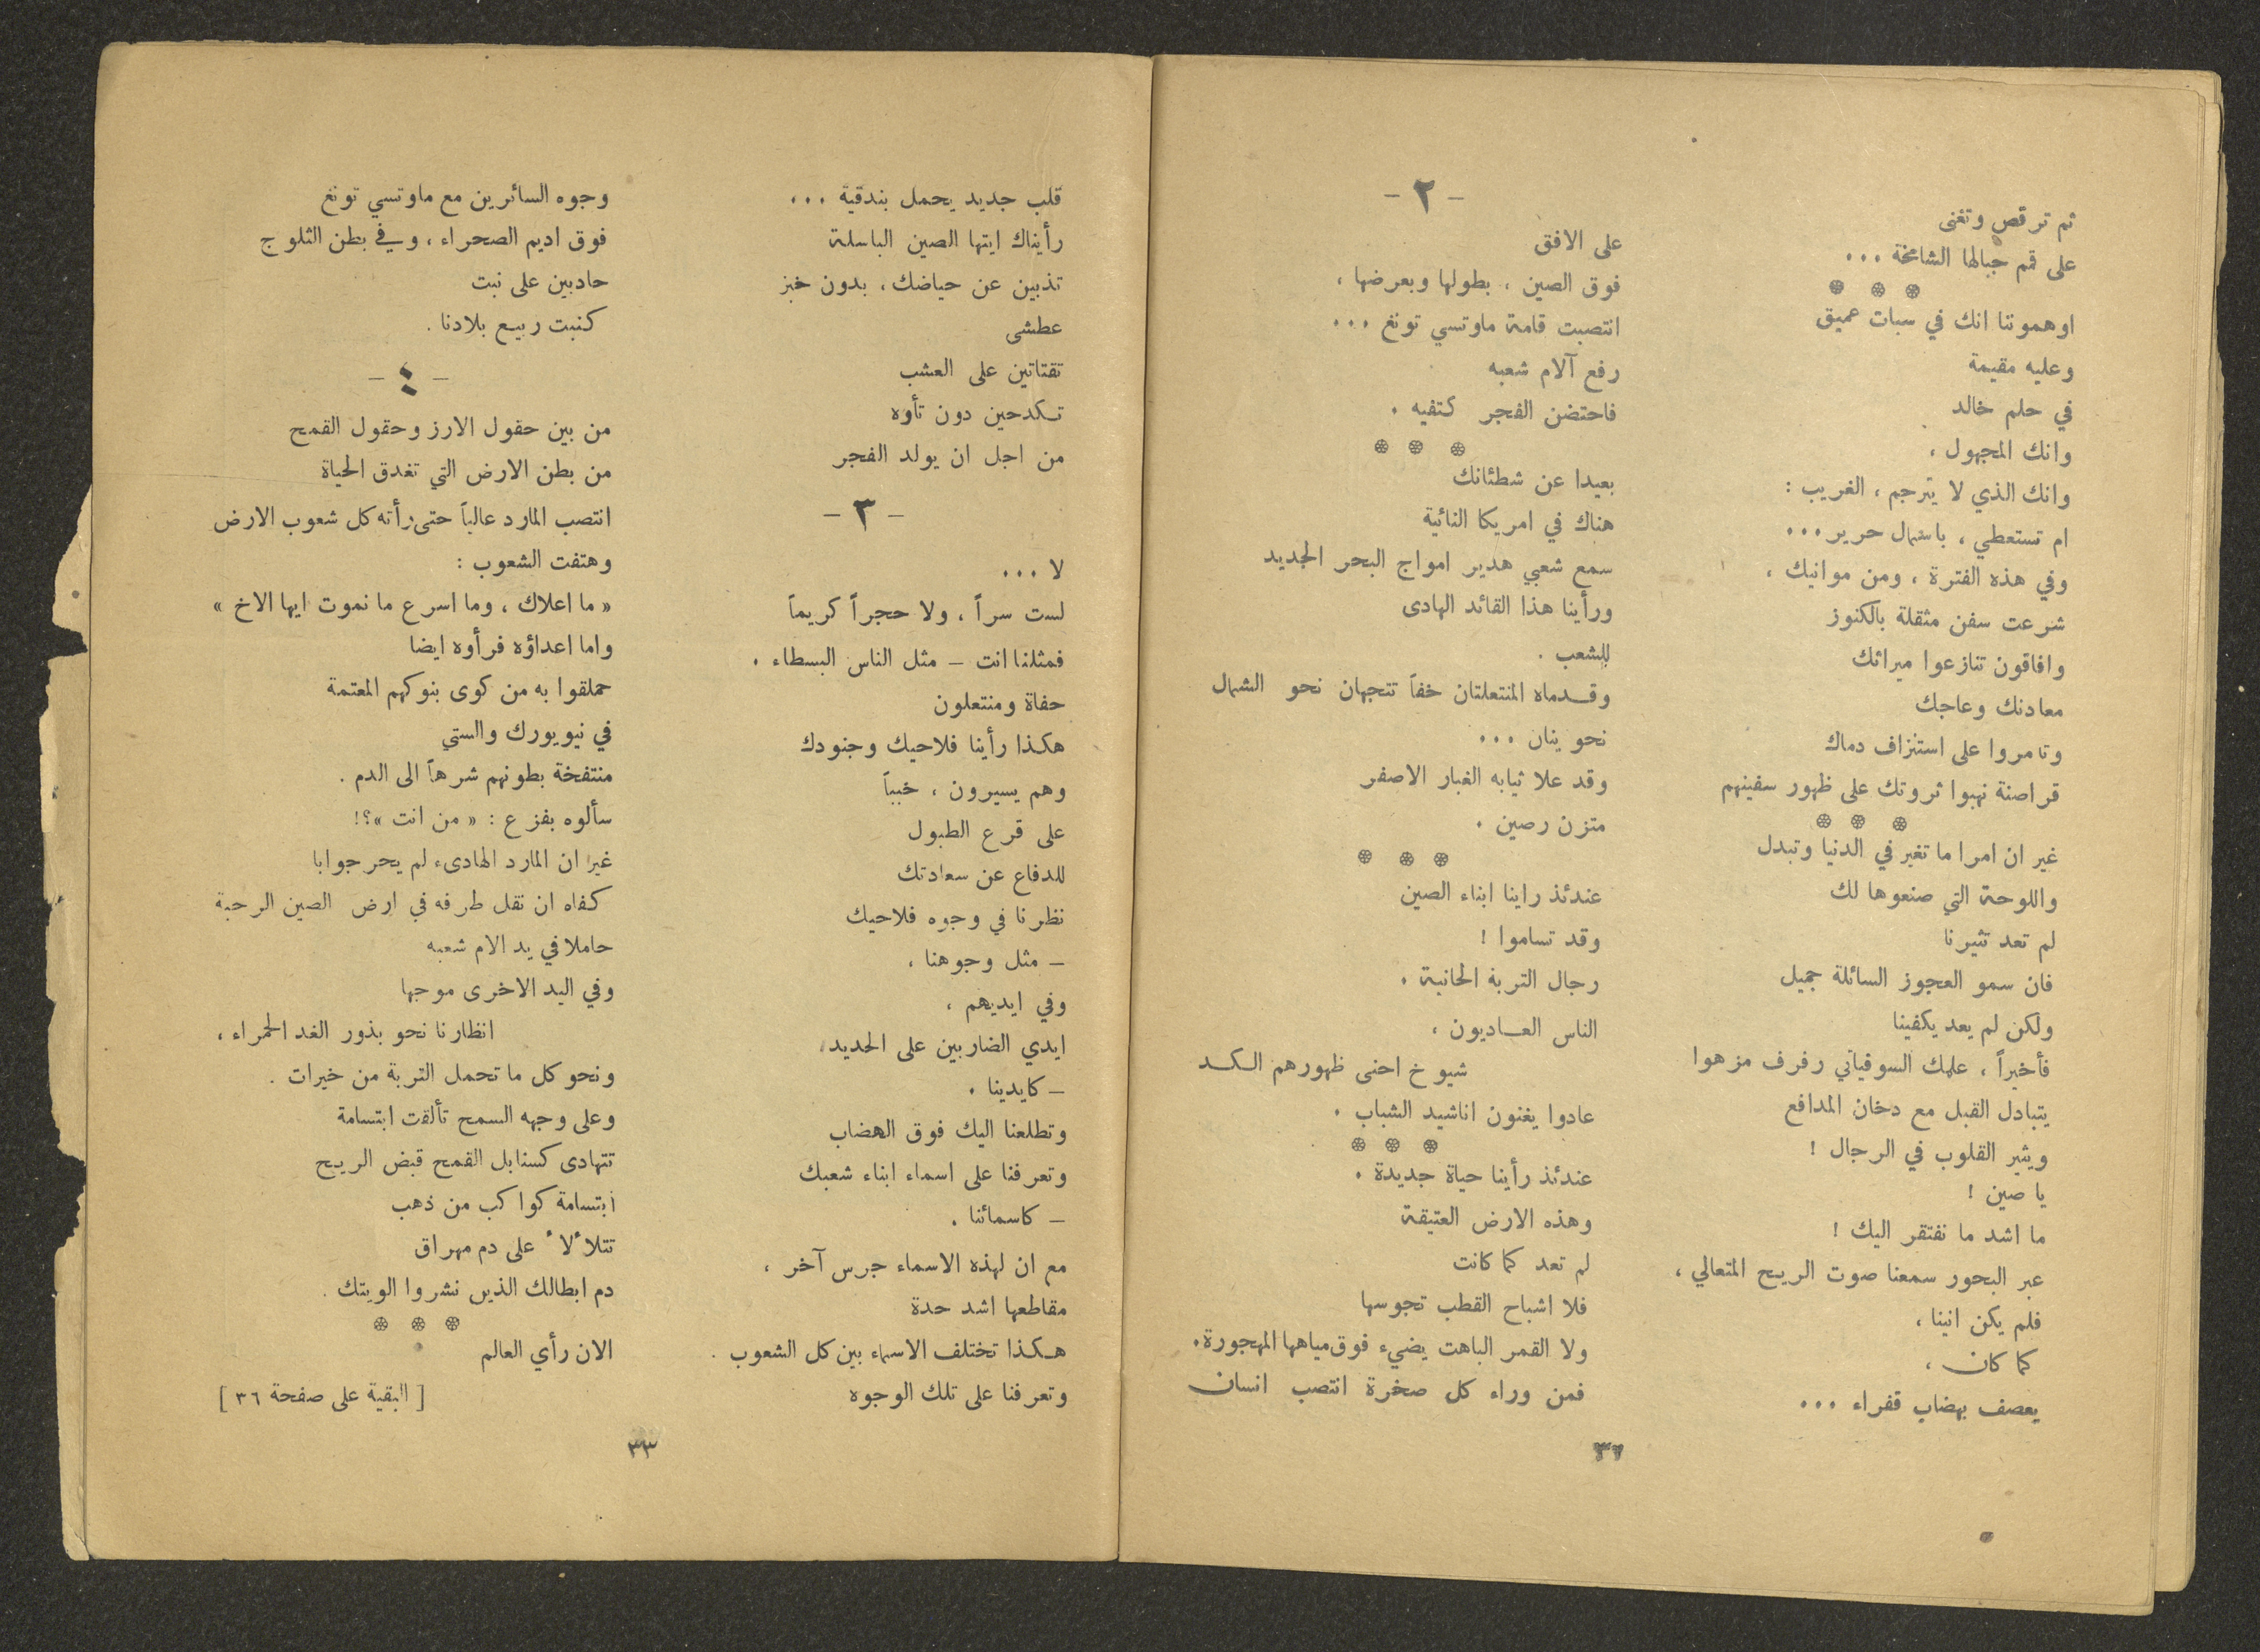 ثم ترقص وتغنى
على قمم جبالها الشامخة ...
اوهموننا انك في سبات عميق
وعليه مقيمة
في حلم خالد
وانك المجهول ،
وانك الذي لا يترجم ، الغريب :
ام تستعطي ، باسمال حرير ...
وفي هذه الفترة ، ومن موانيك ،
شرعت سفن مثقلة بالكنوز
وافاقون تنازعوا ميراثك
معادنك وعاجك
وتامروا على استنزاف دماك
قراصنة نهبوا ثروتك على ظهور سفينهم
غير ان امرا ما تغير في الدنيا وتبدل
واللوحة التي صنعوها لك
لم تعد تثيرنا
فان سمو العجوز السائلة جميل
ولكن لم يعد يكفينا
فأخيراً ، علمك السوفياتي رفرف مزهوا
يتبادل القبل مع دخان المدافع
ويثير القلوب في الرجال !
يا صين !
ما اشد ما نفتقر اليك !
عبر البحور سمعنا صوت الريح المتعالي ،
فلم يكن انينا ،
كما كان ،
يعصف بهضاب قفراء ...
- ٢ -
على الافق
فوق الصين ، بطولها وبعرضها ،
انتصبت قامة ماوتسي تونغ ...
رفع آلام شعبه
فاحتضن الفجر كتفيه .
بعيدا عن شطئانك
هناك في امريكا النائية
سمع شعبي هدير امواج البحر الجديد
ورأينا هذا القائد الهادى
للشعب .
وقدماه المنتعلتان خفاً تتجهان نحو الشمال
نحو ينان ...
وقد علا ثيابه الغبار الاصفر
متزن رصين .
عندئذ راينا ابناء الصين
وقد تساموا !
رجال التربة الحانية .
الناس العاديون ،
شيوخ احنى ظهورهم الكد
عادوا يغنون اناشيد الشباب .
عندئذ رأينا حياة جديدة .
وهذه الارض العتيقة
لم تعد كما كانت
فلا اشباح القطب تجوسها
ولا القمر الباهت يضيء فوق مياهها المهجورة.
فمن وراء كل صخرة انتصب انسان
٣٢
قلب جديد يحمل بندقية ...
رأيناك ايتها الصين الباسلة
تذبين عن حياضك ، بدون خبز
عطشى
تقتاتين على العشب
تكدحين دون تأوه
من اجل ان يولد الفجر
- ٣ -
لا ...
لست سراً ، ولا حجراً كريماً
فمثلنا انت – مثل الناس البسطاء .
حفاة ومنتعلون
هكذا رأينا فلاحيك وجنودك
وهم يسيرون ، خبباً
على قرع الطبول
للدفاع عن سعادتك
نظرنا في وجوه فلاحيك
– مثل وجوهنا ،
وفي ايديهم ،
ايدي الضاربين على الحديد،
– كايدينا .
وتطلعنا اليك فوق الهضاب
وتعرفنا على اسماء ابناء شعبك
– كاسمائنا .
مع ان لهذه الاسماء جرس آخر ،
مقاطعها اشد حدة
هكذا تختلف الاسماء بين كل الشعوب .
وتعرفنا على تلك الوجوه
وجوه السائرين مع ماوتسي تونغ
فوق اديم الصحراء ، وفي بطن الثلوج
حادبين على نبت
كنبت ربيع بلادنا .
- ٤ -
من بين حقول الارز وحقول القمح
من بطن الارض التي تغدق الحياة
انتصب المارد عالياً حتى رأته كل شعوب الارض
وهتفت الشعوب :
« ما اعلاك ، وما اسرع ما نموت ايها الاخ »
واما اعداؤه فرأوه ايضا
حملقوا به من كوى بنوكهم المعتمة
في نيويورك والستي
منتفخة بطونهم شرهاً الى الدم .
سألوه بفزع : « من انت »؟!
غير ان المارد الهادىء لم يحر جوابا
كفاه ان نقل طرفه في ارض الصين الرحبة
حاملا في يد الام شعبه
وفي اليد الاخرى موجها
انظارنا نحو بذور الغد الحمراء ،
ونحو كل ما تحمل التربة من خيرات .
وعلى وجهه السمح تألقت ابتسامة
تتهادى كسنابل القمح قبض الريح
ابتسامة كواكب من ذهب
تتلألأ على دم مهراق
دم ابطالك الذين نشروا الويتك .
الان رأي العالم
[ البقية على صفحة ٣٦ ]
٣٣